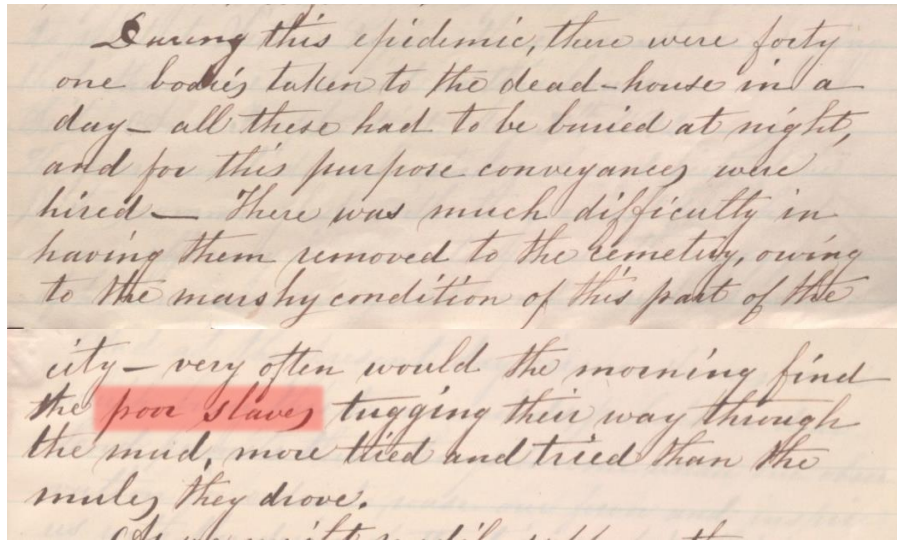 During this epidemic, there were forty
one bodies taken to the dead-house in a
day— all these had to be buried at night,
and for this purpose conveyances were
hired— There was much difficulty in
having them removed to the cemetery, owing
to the marshy condition of this part of the
city— very often would the morning find
the poor slaves tugging their way through
the mud, more tied and tried than the
mules they drove.